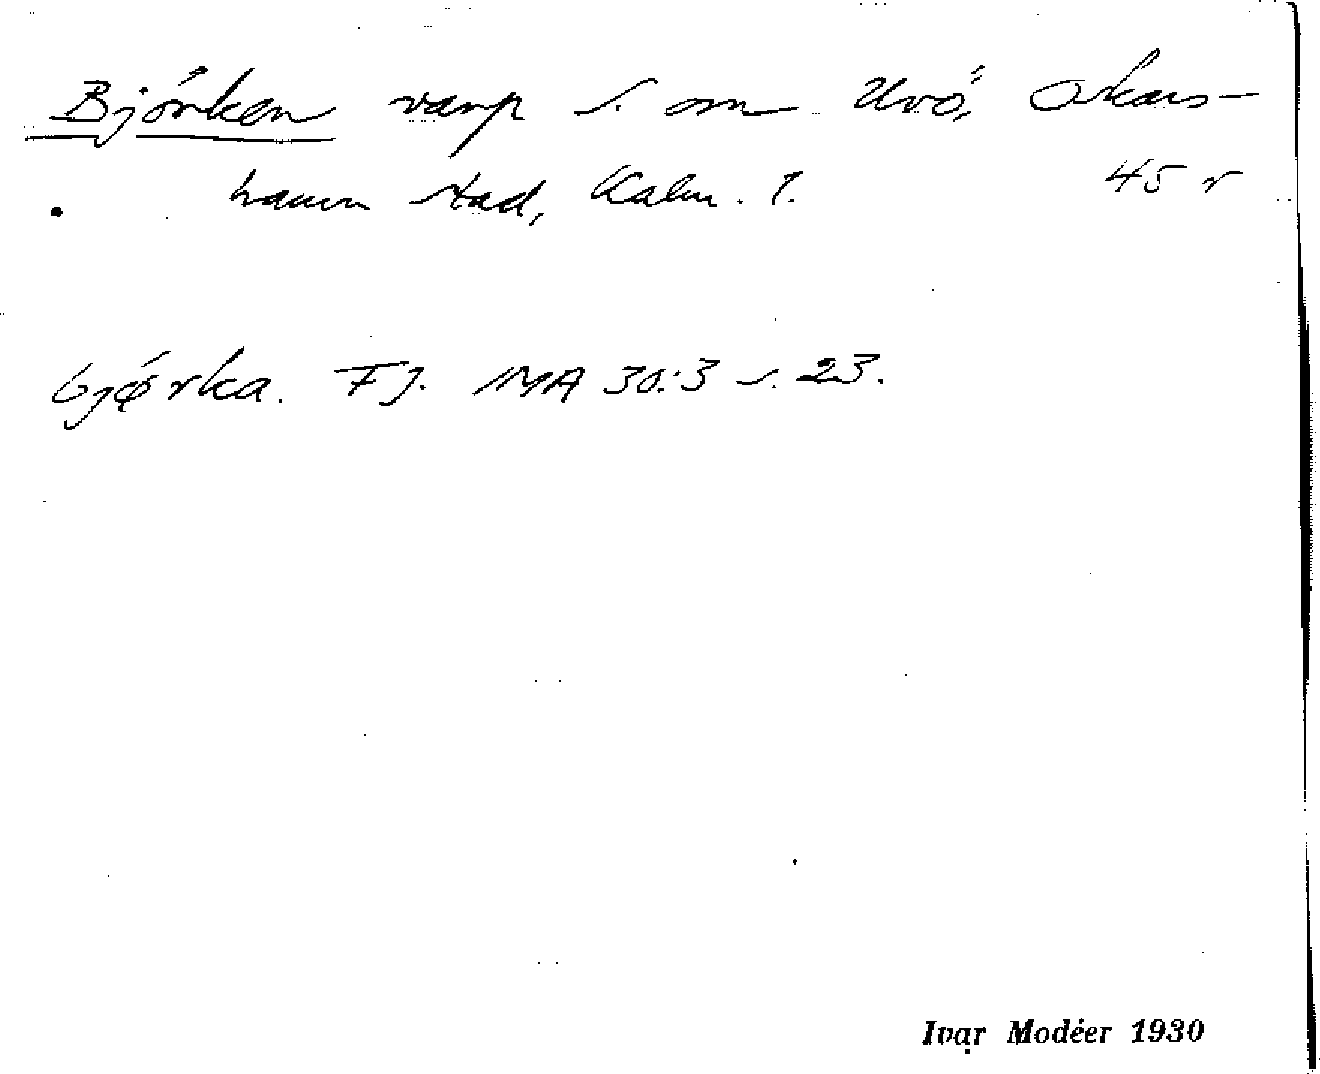 Björken varp S. om Uvö, Oskars-
hamn stad, Kalm. l. 45 r
bjǿrka. FJ. IMA 30:3 s. 23.
Ivar Modéer 1930